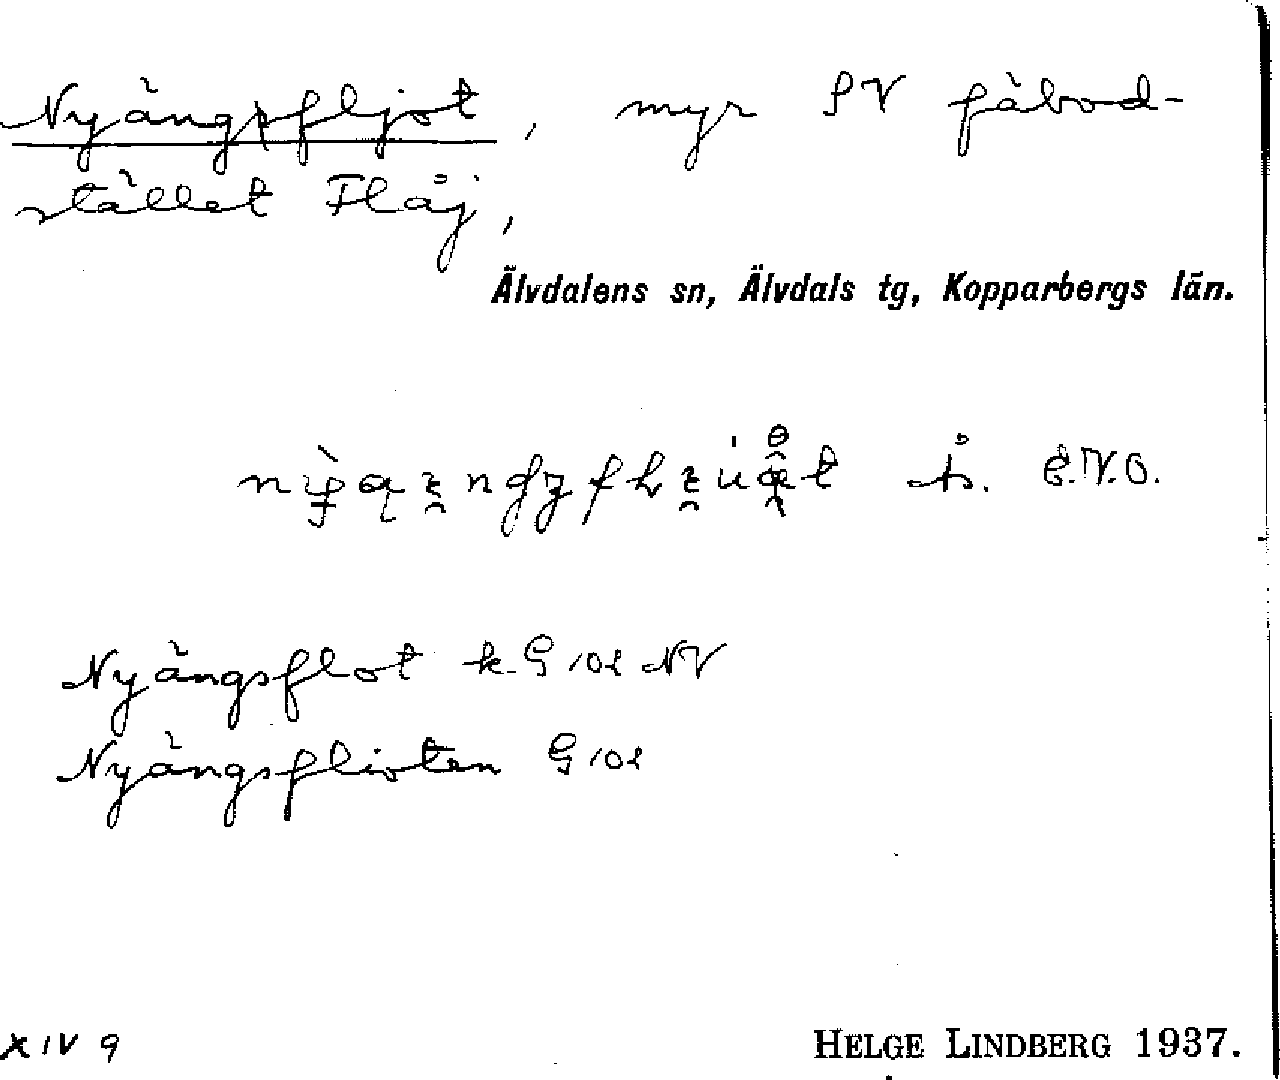 Nyängsfljot, myr SV fäbod-
stället Flåj,
Älvdalens sn, Älvdals tg, Kopparbergs län.
E.V.O.
Nyängsflot k. G 102 NV
Nyängsflioten G 102
XIV 9
HELGE LINDBERG 1937.